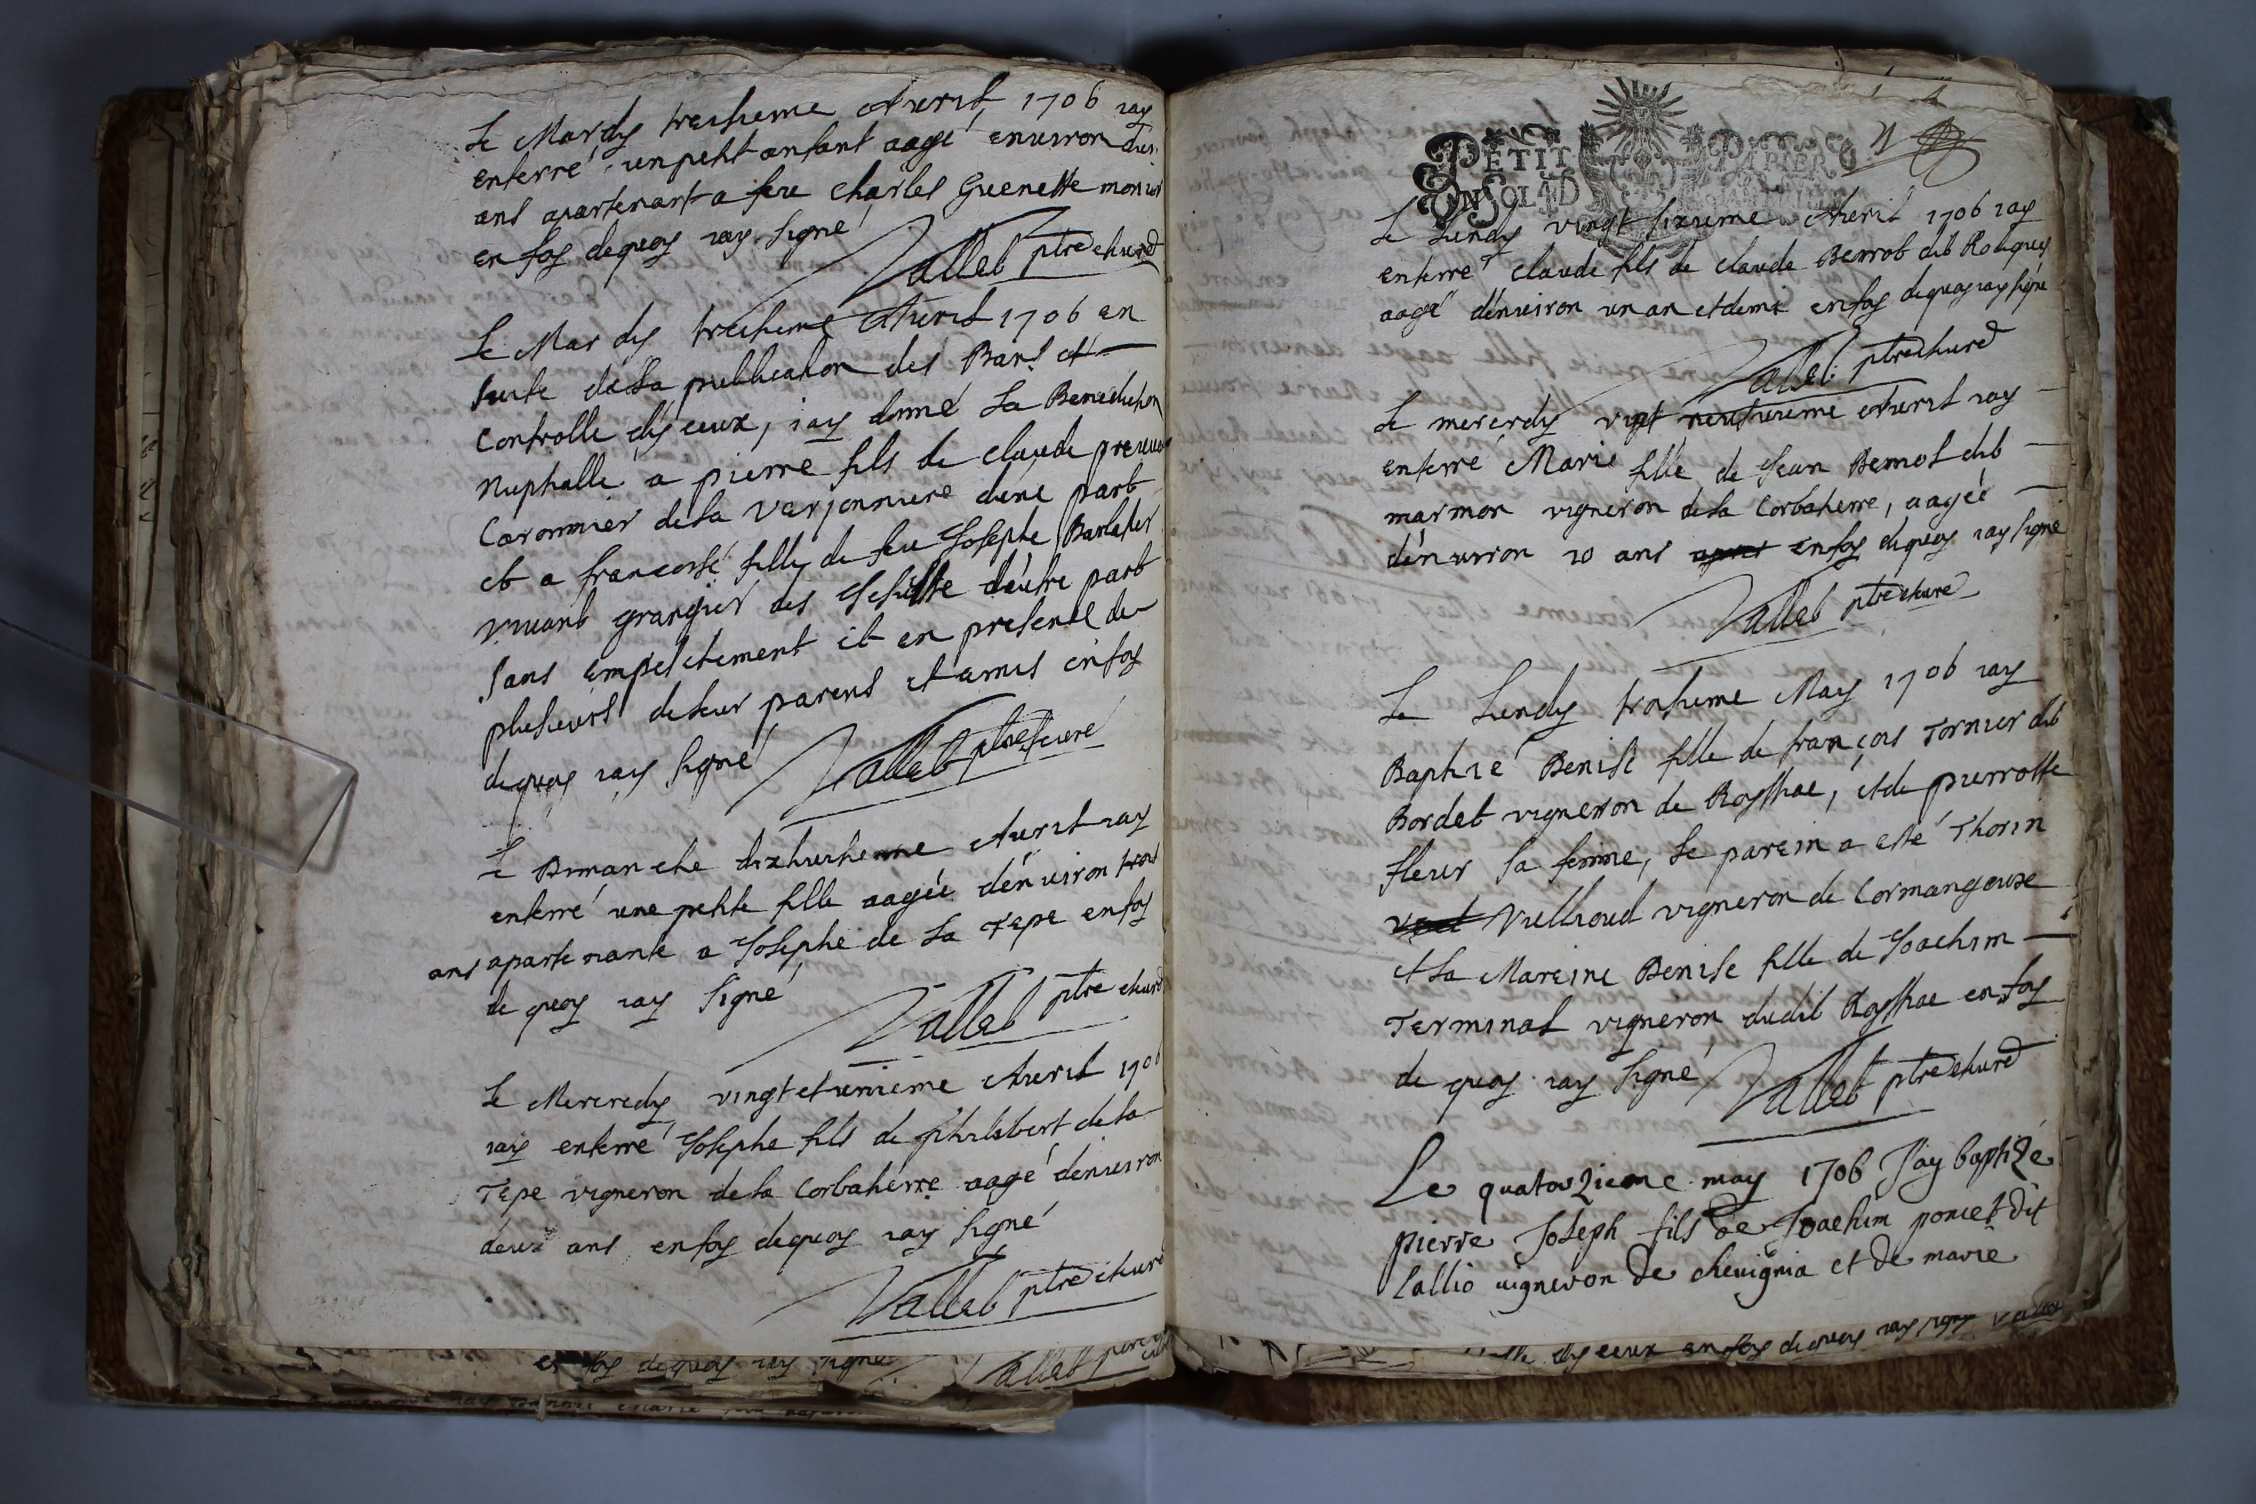 Le Mardy treisieme Avril 1706 iay
enterré un petit anfant aagé environ d'un
ans apartenant a feu Charles Guenette monier
en foy dequoy iay signé
Vallet ptre curé
Le Mardy treisieme Avril 1706 en
suite de la publication des Bans et
Controlle d'yceux, iay donné la Benediction
Nuptialle a pierre fils de claude
Caronnier de la Verjonniere d'une part
et a francoise fille de feu Josephe
vivant grangier des d'autre part
sans empeschement et en presence de
plusieurs de leur parens et amis en foy
dequoy iay signé Vallet ptre curé
Le Dimanche dixhuitieme Avril iay
enterré une petite fille aagée d'environ trois
ans apartenante a Josephe de la Tepe en foy
de quoy iay signé
Vallet ptre curé
Le Mercredy vingt et unieme Avril 1706
iay enterré Josephe fils de philibert de la
Tepe vigneron de la Corbaherre aagé denviron
deux ans en foy dequoy iay signé
Vallet ptre curé
en foy dequoy iay signé Vallet
PETIT PAPIER
Le Lundy vingt sixieme Avril 1706 iay
enterré claude fils de claude Berrot dit Rouguey
aagé d'environ un an et demi en foy dequoy iay signé
Vallet ptre curé
Le mercrdy vigt neufvieme Avril iay
enterré Marie fille de Jean Bernol dit
marmon vigneron de la Corbaherre, aagée
d'environ 10 ans en foy dequoy iay signé
Vallet ptre curé
Le Lundy troisieme May 1706 iay
Baptisé Denise fille de françois Tornier dit
Bordet vigneron de Roysshac, et de pierrotte
fleur sa femme, le parein a esté Thorin
Vuilloud vigneron de Cormangoux
et la Mareine Denise fille de Joachim
Terminal vigneron dudit Roysshac en foy
de quoy iay signé Vallet ptre curé
Le quatorzieme may 1706 J'ay baptizé
pierre Joseph fils de Joachim poncet dit
lallio vigneron de chevignia et de marie
d'yceux en foy dequoy iay signé Vallet